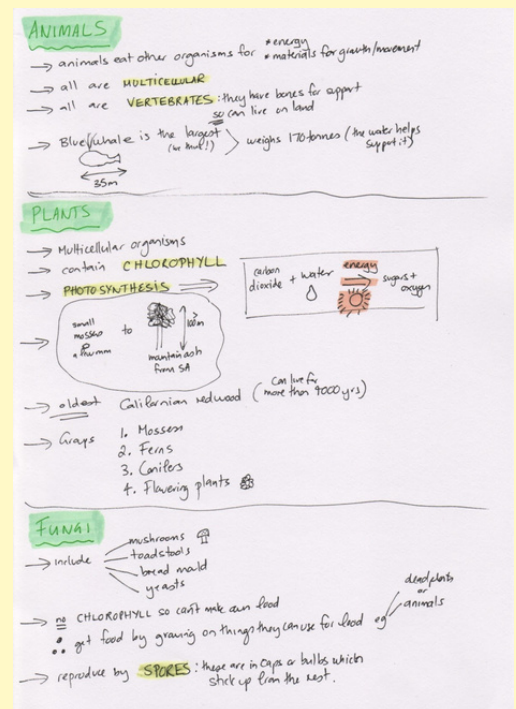 ANIMALS
→ animals eat other organisms for * energy
* materials for growth/movement
→ all are MULTICELLULAR
→ all are VERTEBRATES : they have bones for support
so can live on land
→ Blue whale is the largest
(we think!)
weighs 170 tonnes (the water helps
support it)
35m
PLANTS
→ Multicellular organisms
→ contain CHLOROPHYLL
→ PHOTOSYNTHESIS ⇒
carbon
dioxide + water
energy
sugars +
oxygen
→ small
mosses
to
100m
mountain ash
from SA
→ oldest Californian redwood (can live for
more than 4000 yrs)
→ Groups 1. Mosses
2. Ferns
3. Conifers
4. Flowering plants
FUNGI
→ include
mushrooms
toadstools
bread mould
yeasts
→ no CHLOROPHYLL so can't make own food
∴ get food by growing on things they can use for food eg
dead plants
or
animals
→ reproduce by SPORES : these are in caps or bulbs which
stick up from the rest.